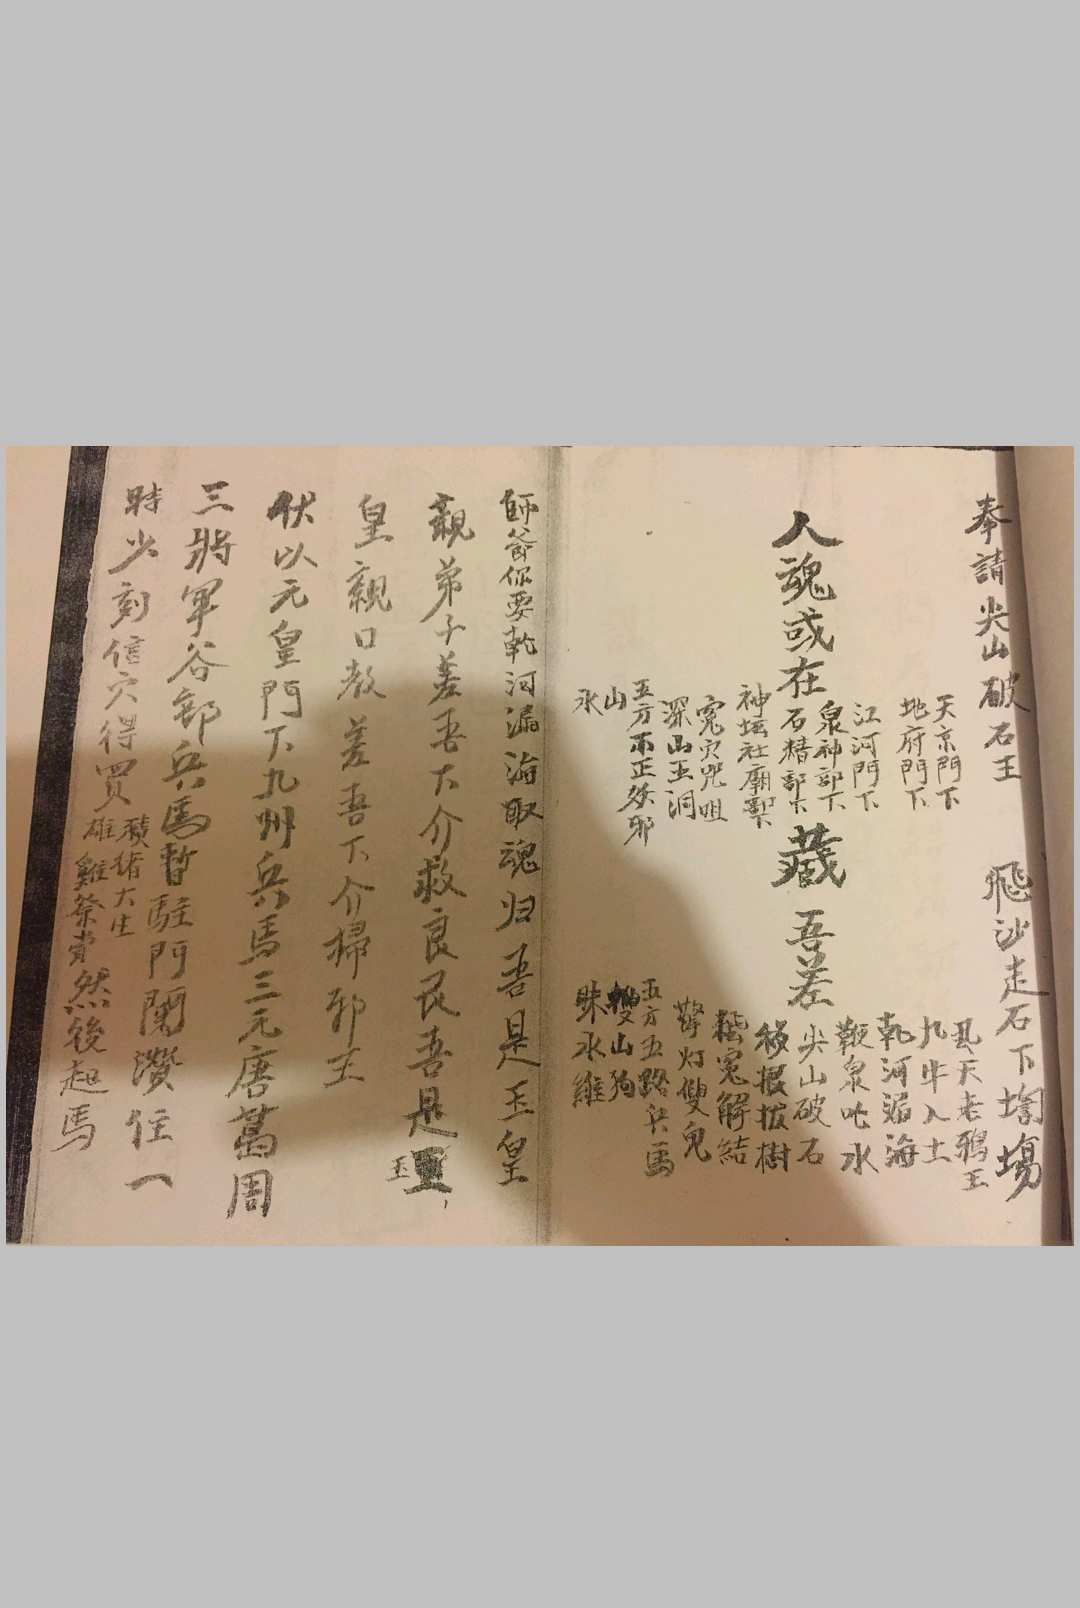 奉請尖山破石王 飛沙走石下壋塲
天京門下
地府門下
江河門下
泉神部下
人魂或在石精部下藏吾差
神坛社廟部下
冤穴咒咀
深山玉洞
五方不正妖邪
山
水
天老鴉王
九牛入土
乾河漏海
鞭泉吡水
尖山破石
移根拔樹
冤解結
擎灯雙鬼
五方五路兵馬
山狗
水維
師爺你要乾河漏海取魂归吾是玉皇
親弟子差吾下介救良民吾是玉
皇親口教差吾下介掃邪王
伏以元皇門下九州兵馬三元唐葛周
三將軍谷部兵馬暫駐阿蘭 住一
時少刻信穴得買 猪大生
雄雞祭賞然後起馬